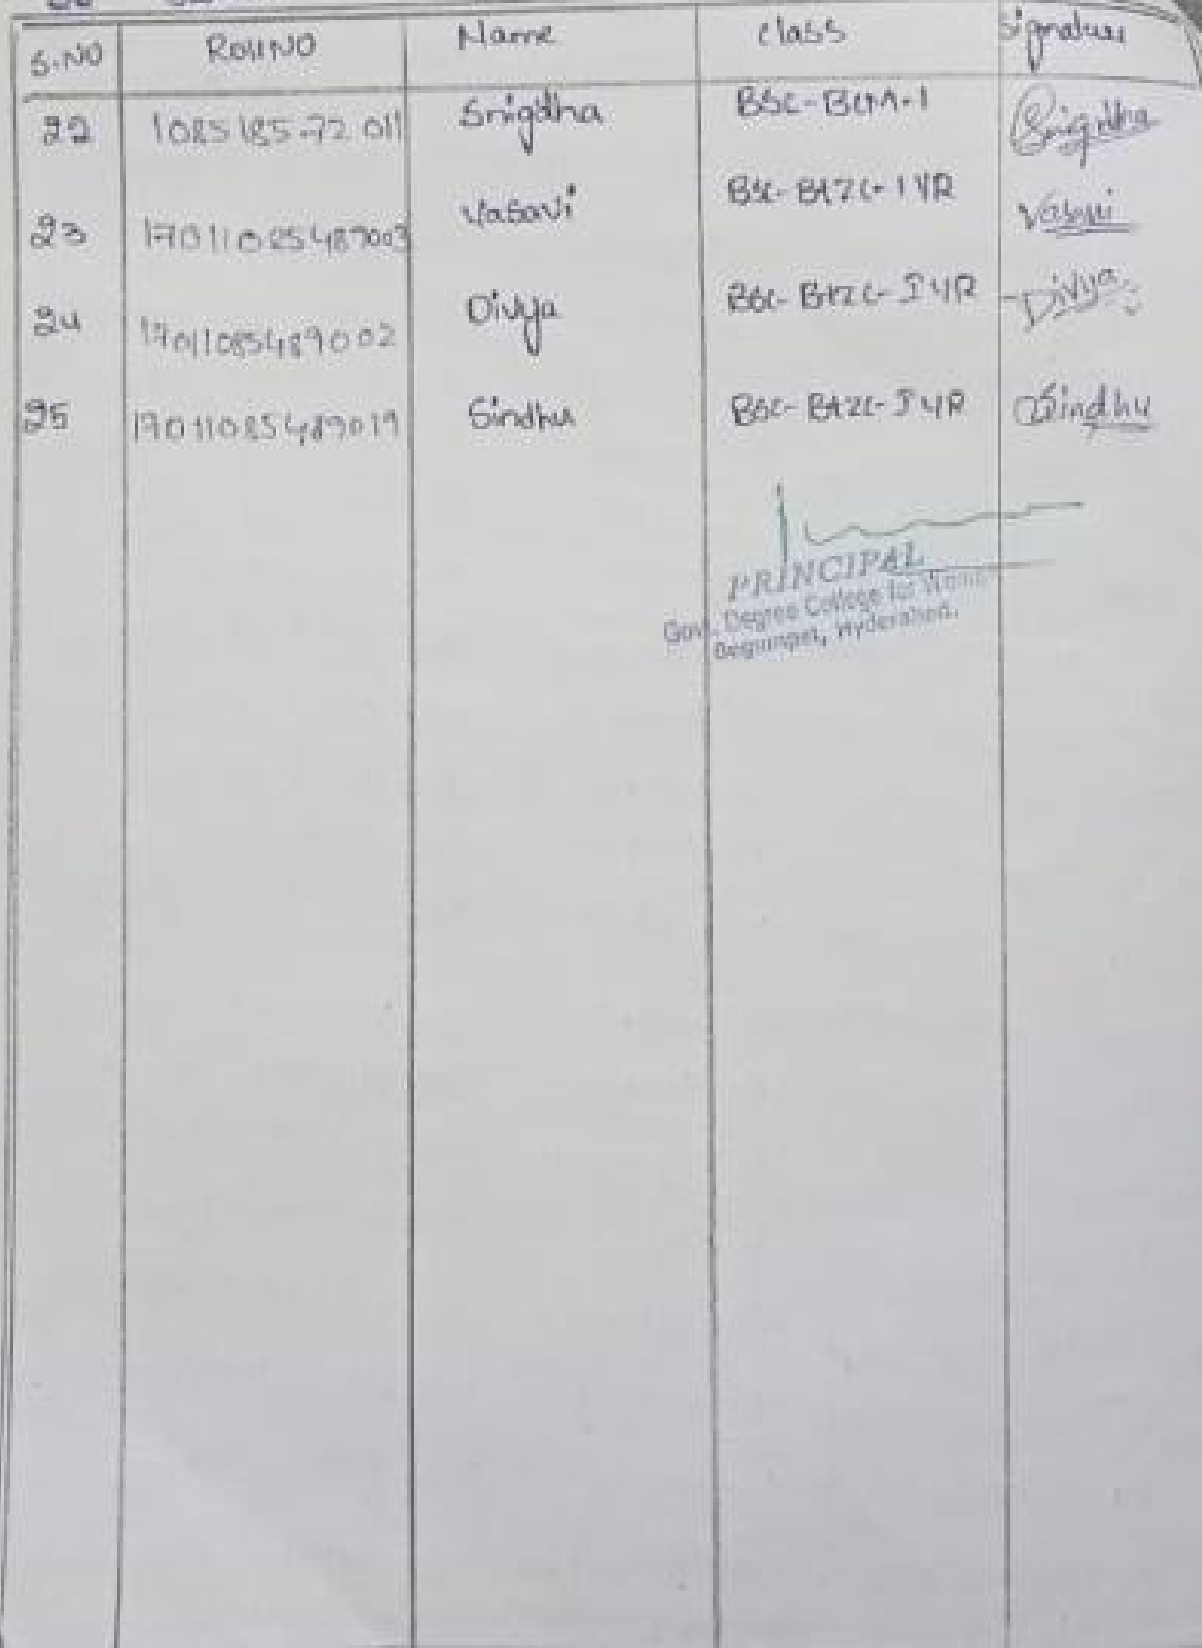 S.NO Roll NO Name class Signature
22 1085 185-72 011 Srigdha BSC-BCM-1 Srigdha
23 17011085489003 Vasavi BSC-BtZC-1 YR Vasavi
24 17011085489002 Divya BSC-BtZC-I YR Divya
25 17011085489019 Sindhu BSC-BtZC-I YR Sindhu
PRINCIPAL
Govt. Degree College for Women
Begumpet, Hyderabad.